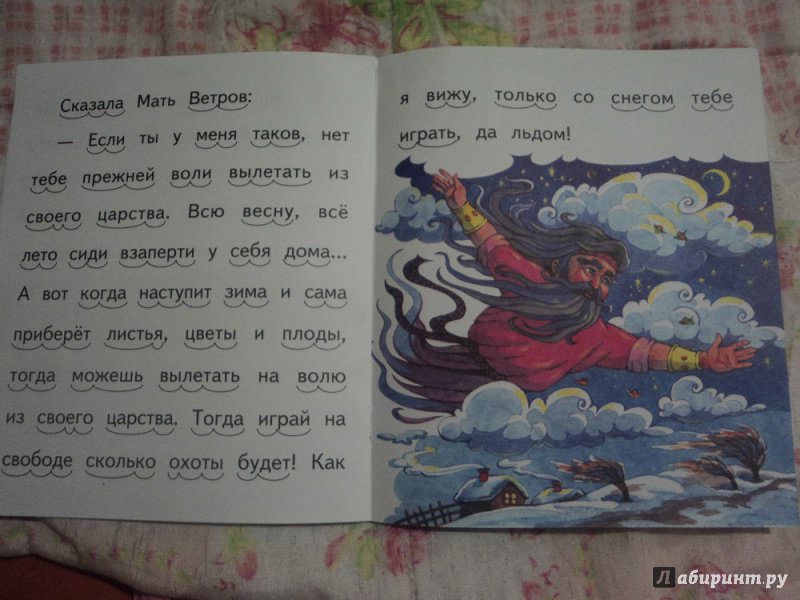 Сказала Мать Ветров:
— Если ты у меня таков, нет
тебе прежней воли вылетать из
своего царства. Всю весну, всё
лето сиди взаперти у себя дома...
А вот когда наступит зима и сама
приберёт листья, цветы и плоды,
тогда можешь вылетать на волю
из своего царства. Тогда играй на
свободе сколько охоты будет! Как
я вижу, только со снегом тебе
играть, да льдом!
Лабиринт.ру